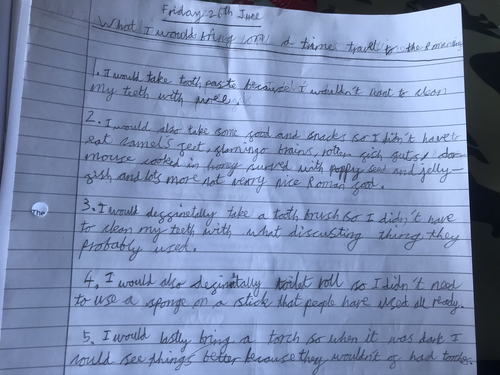 Friday 26th June
What I would bring on a time travel to the Roman
1. I would take tooth paste because I wouldn't want to clean
my teeth with
2. I would also take some food and snacks so I didn't have to
eat camels feet, flamingo brains, roten fish guts, dor
mouse cooked in honey surved with poppy seed and jelly-
fish and lots more not verry nice Roman food.
3. I would deffinetally take a tooth brush so I didn't have
to clean my teeth with what discusting thing they
probably used.
The
4. I would also definitally toilet roll so I didn't need
to use a sponge on a stick that people have used all ready.
5. I would lastly bring a torch so when it was dark I
could see things better because they wouldn't of had torches.